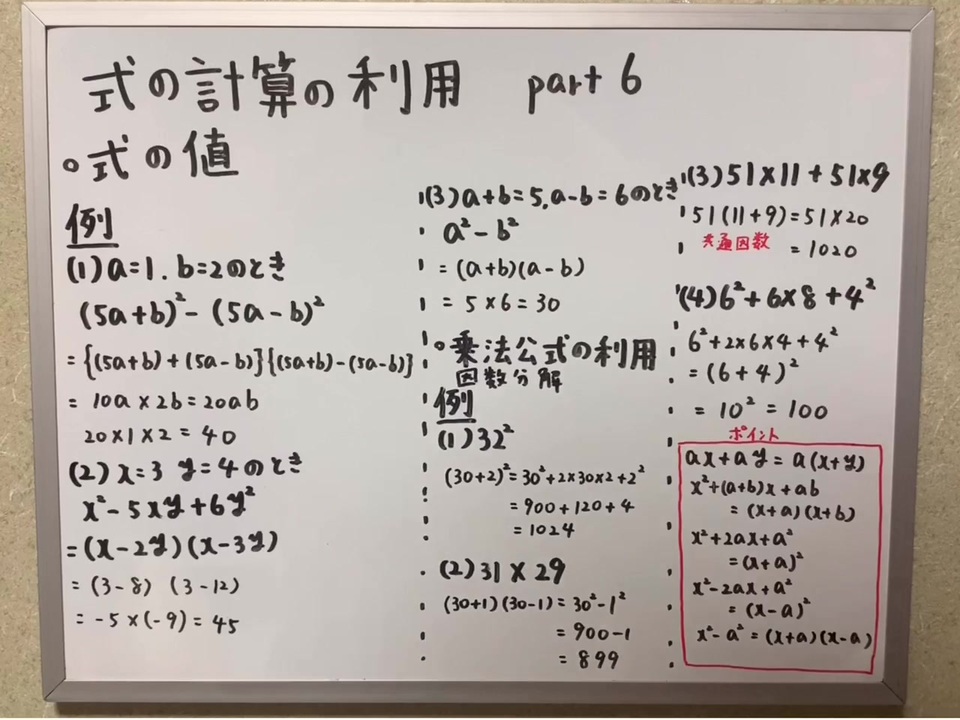 式の計算の利用 part 6
○式の値
例
(1) a=1. b=2のとき
(5a+b)²-(5a-b)²
={(5a+b)+(5a-b)}{(5a+b)-(5a-b)}
= 10a×2b=20ab
20×1×2=40
(2) x=3 y=4のとき
x²-5xy+6y²
=(x-2y)(x-3y)
=(3-8) (3-12)
=-5×(-9)=45
(3) a+b=5, a-b=6のとき
a²-b²
=(a+b)(a-b)
= 5×6=30
○乗法公式の利用
因数分解
例
(1) 32²
(30+2)²=30²+2×30×2+2²
=900+120+4
=1024
(2) 31×29
(30+1)(30-1)=30²-1²
=900-1
=899
(3) 51×11+51×9
51(11+9)=51×20
共通因数 =1020
(4) 6²+6×8+4²
6²+2×6×4+4²
=(6+4)²
=10²=100
ポイント
ax+ay=a(x+y)
x²+(a+b)x+ab
=(x+a)(x+b)
x²+2ax+a²
=(x+a)²
x²-2ax+a²
=(x-a)²
x²-a²=(x+a)(x-a)